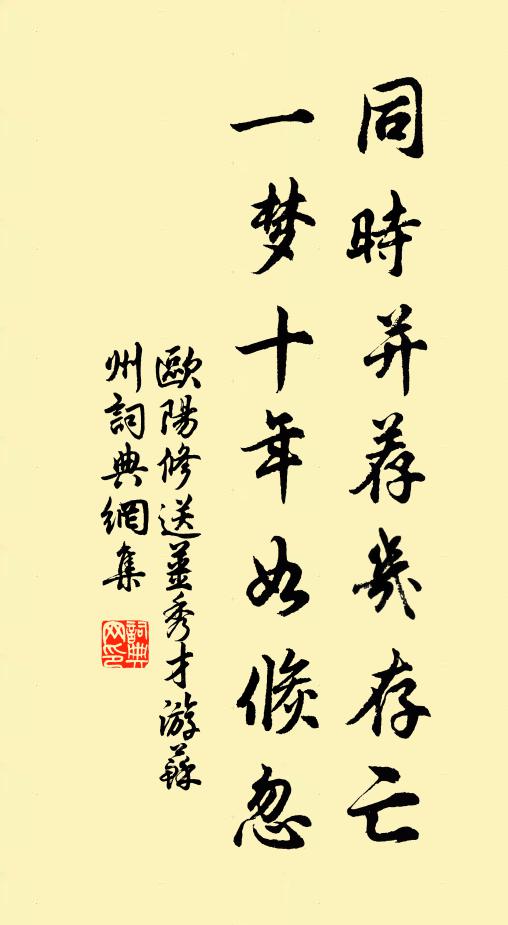 同時并荐幾存亡
一梦十年如倏忽
歐陽修送姜秀才游蘇
州詞典網集
詞典网印